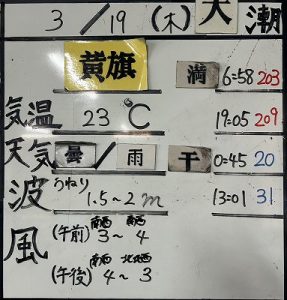 3 / 19 (木) 大潮
黄旗
満 6:58 203
気温 23℃ 19:05 209
天気 曇 / 雨 干 0:45 20
波 うねり 1.5~2m 13:01 31
風 (午前) 南西 3~ 南西 4
(午後) 南西 4~ 北北西 3